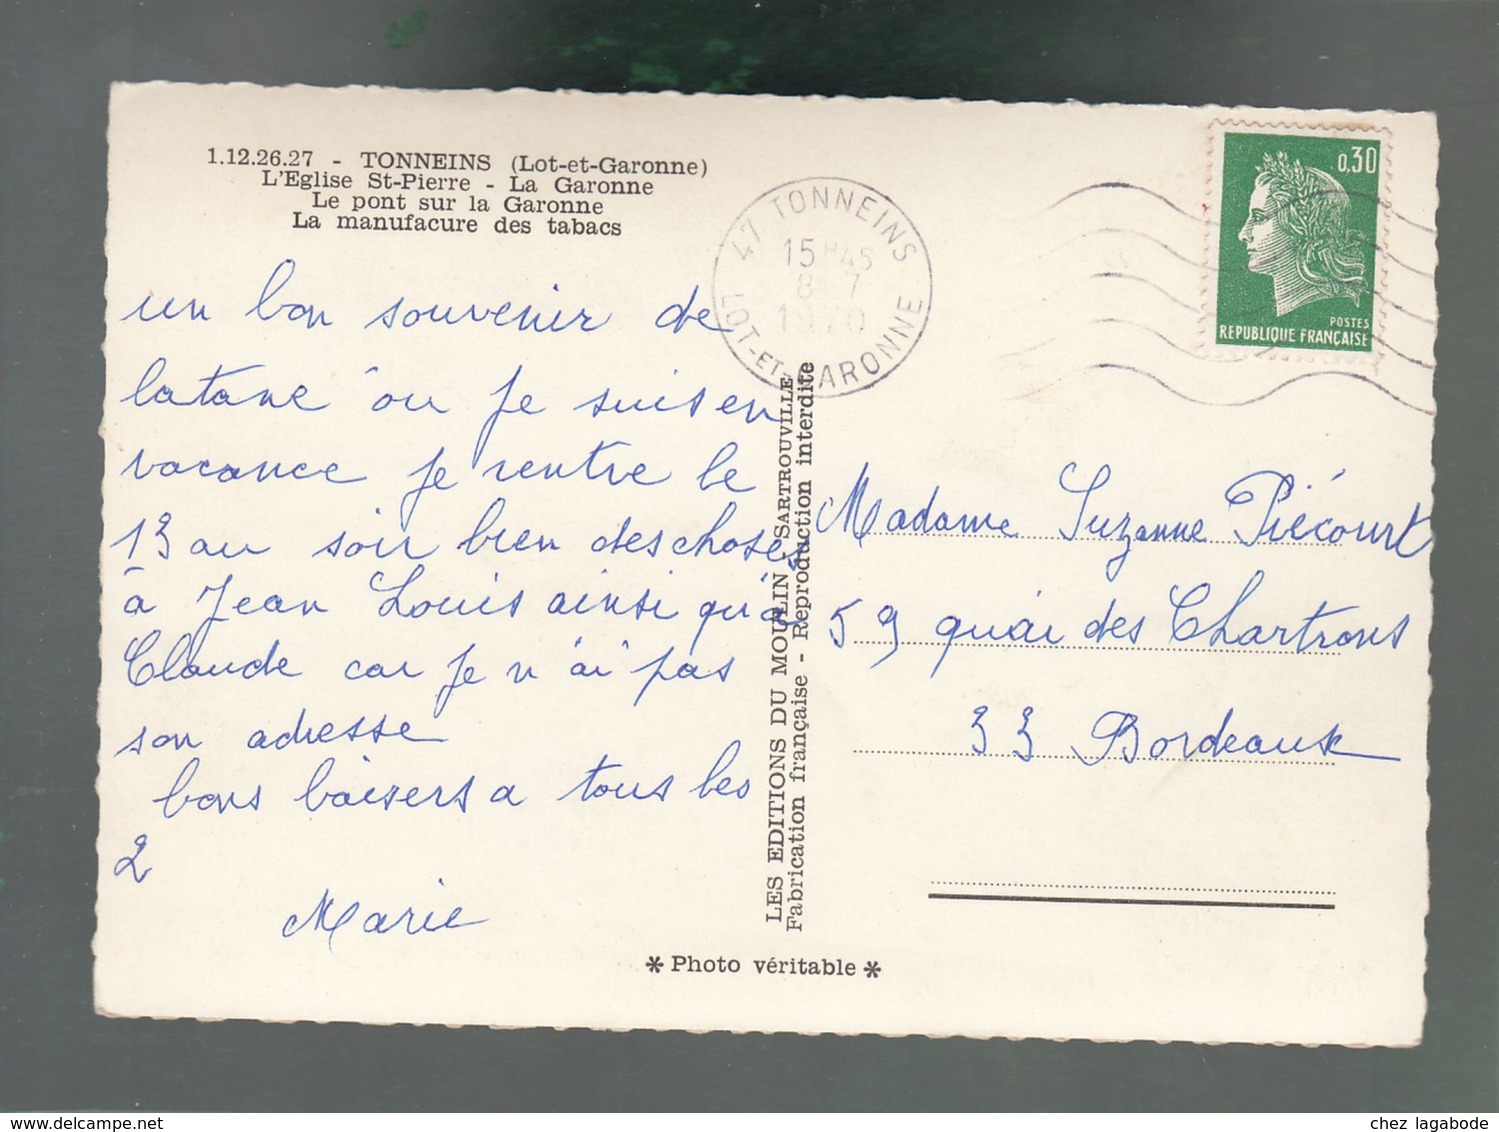 1.12.26.27 - TONNEINS (Lot-et-Garonne)
L'Eglise St-Pierre - La Garonne
Le pont sur la Garonne
La manufacure des tabacs
47 TONNEINS
15 H45
8-7
1970
LOT-ET-GARONNE
0,30
POSTES
REPUBLIQUE FRANÇAISE
un bon souvenir de
latane ou je suis en
vacance je rentre le
13 au soir bien des choses
à Jean Louis ainsi qu'a
Claude car je n'ai pas
son adresse
bons baisers a tous les
2
Marie
LES EDITIONS DU MOULIN - SARTROUVILLE
Fabrication française - Reproduction interdite
Madame Suzanne Piécourt
59 quai des Chartrons
33 Bordeaux
* Photo véritable *
chez lagabode